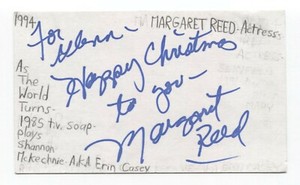 1994
MARGARET REED-Actress-
For Glenn-
Happy Christmas
to you-
Margaret
Reed
As
The
World
Turns-
1985 t.v. soap-
plays
shannon
Mckechnie-A.K.A Erin Casey